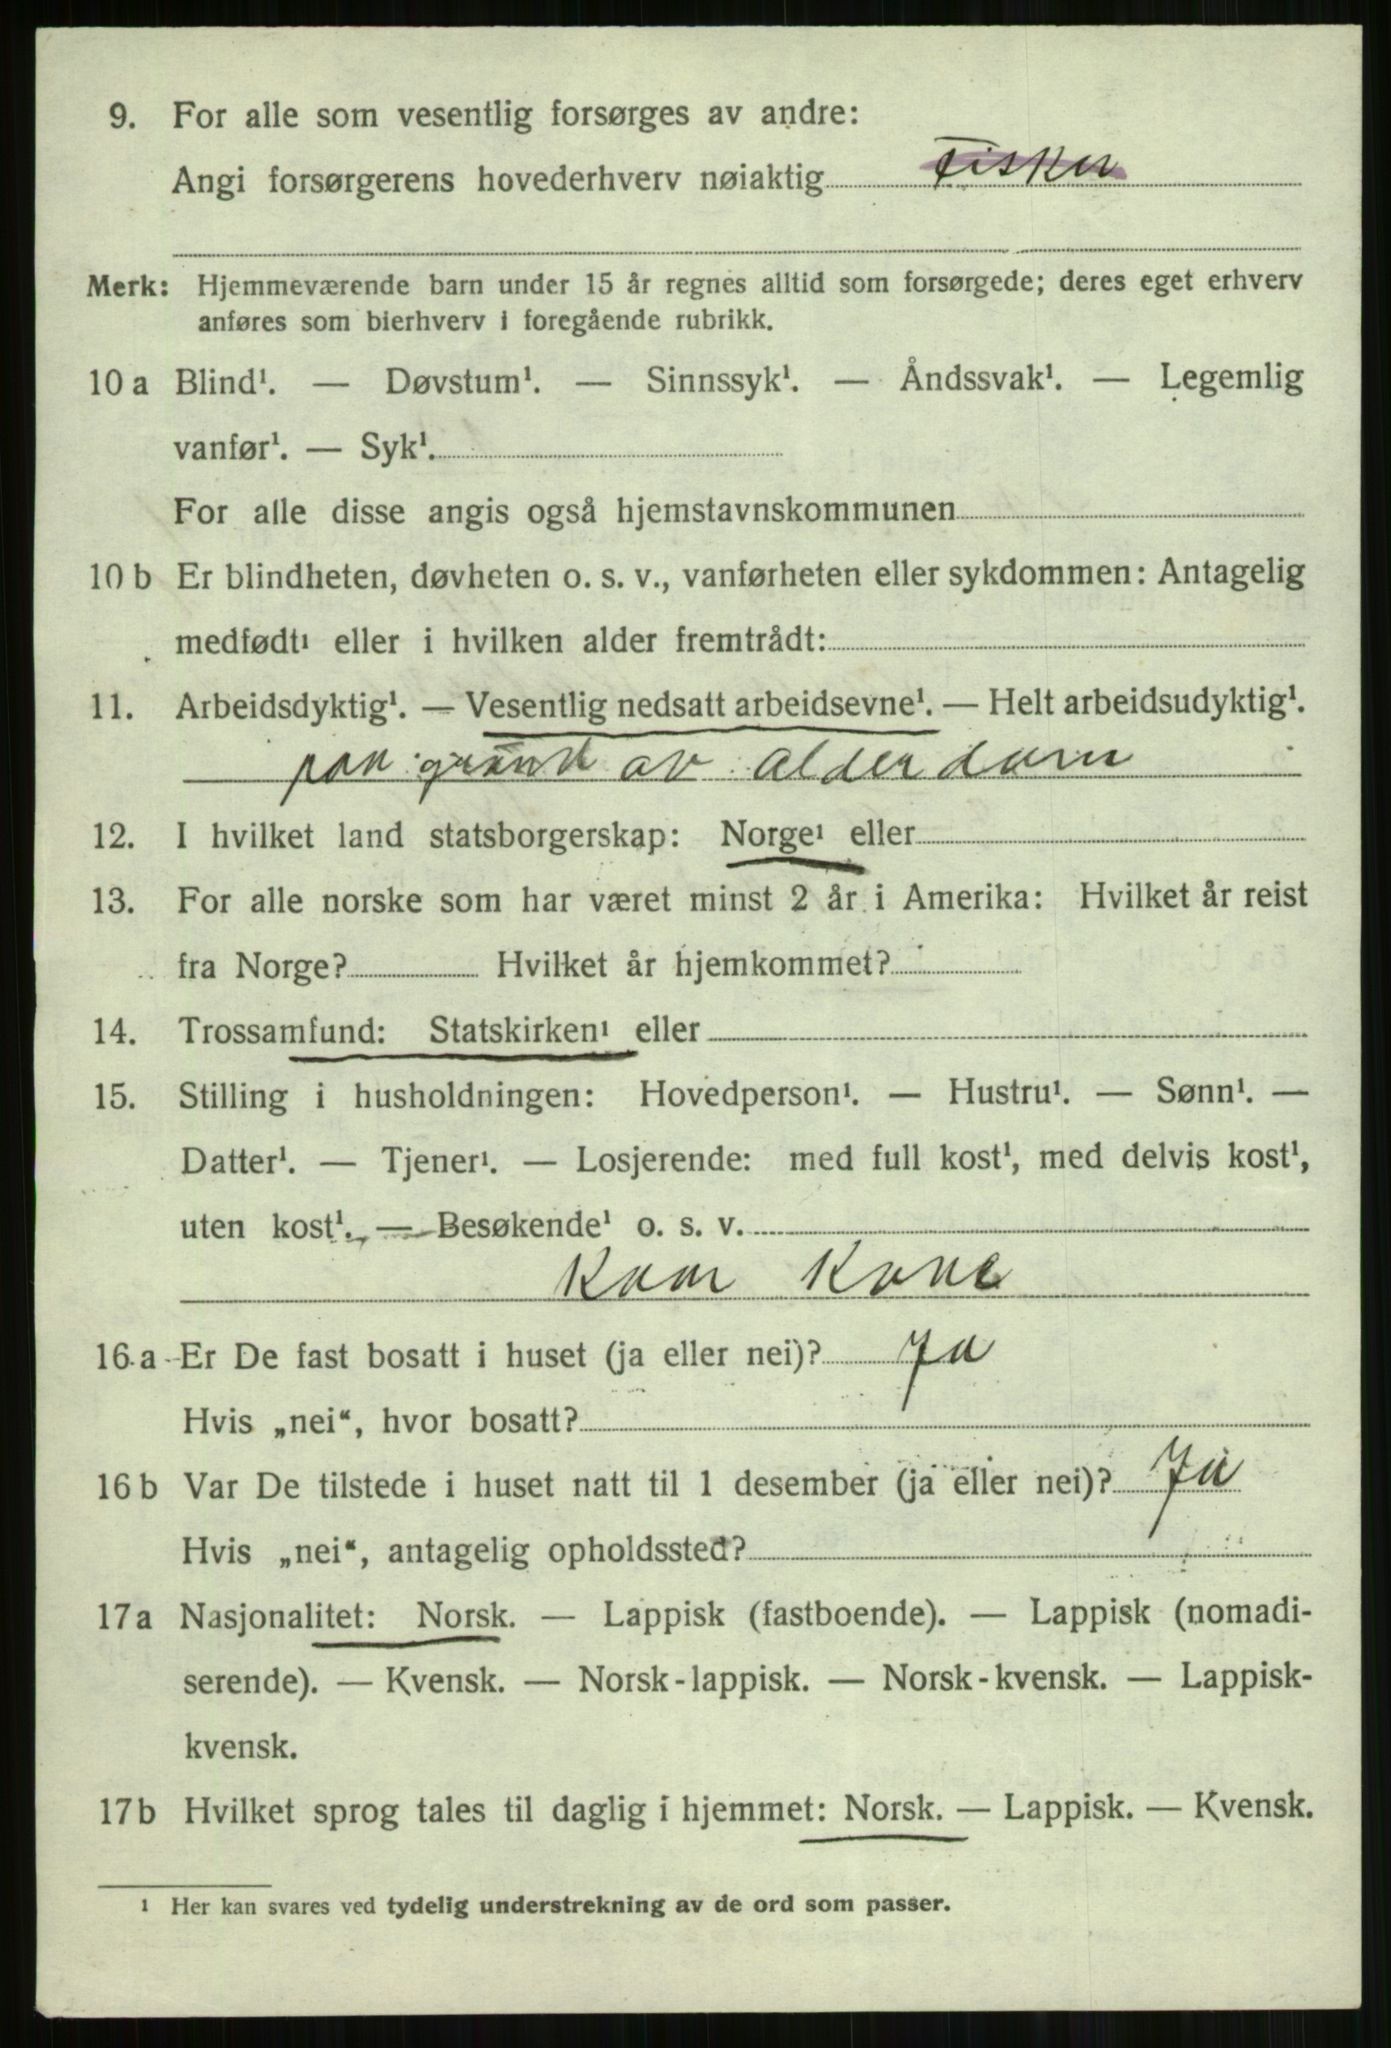 9. For alle som vesentlig forsørges av andre:
Angi forsørgerens hovederhverv nøiaktig Fisker
Merk: Hjemmeværende barn under 15 år regnes alltid som forsørgede; deres eget erhverv
anføres som bierhverv i foregående rubrikk.
10 a Blind¹. — Døvstum¹. — Sinnssyk¹. — Åndssvak¹. — Legemlig
vanfør¹. — Syk¹.
For alle disse angis også hjemstavnskommunen
10 b Er blindheten, døvheten o. s. v., vanførheten eller sykdommen: Antagelig
medfødt¹ eller i hvilken alder fremtrådt:
11. Arbeidsdyktig¹. — Vesentlig nedsatt arbeidsevne¹. — Helt arbeidsudyktig¹.
paa grund av alderdom
12. I hvilket land statsborgerskap: Norge¹ eller
13. For alle norske som har været minst 2 år i Amerika: Hvilket år reist
fra Norge? Hvilket år hjemkommet?
14. Trossamfund: Statskirken¹ eller
15. Stilling i husholdningen: Hovedperson¹. — Hustru¹. — Sønn¹. —
Datter¹. — Tjener¹. — Losjerende: med full kost¹, med delvis kost¹,
uten kost¹. — Besøkende¹ o. s. v.
Kaar Kone
16 a Er De fast bosatt i huset (ja eller nei)? Ja
Hvis „nei“, hvor bosatt?
16 b Var De tilstede i huset natt til 1 desember (ja eller nei)? Ja
Hvis „nei“, antagelig opholdssted?
17 a Nasjonalitet: Norsk. — Lappisk (fastboende). — Lappisk (nomadi-
serende). — Kvensk. — Norsk-lappisk. — Norsk-kvensk. — Lappisk-
kvensk.
17 b Hvilket sprog tales til daglig i hjemmet: Norsk. — Lappisk. — Kvensk.
¹ Her kan svares ved tydelig understrekning av de ord som passer.